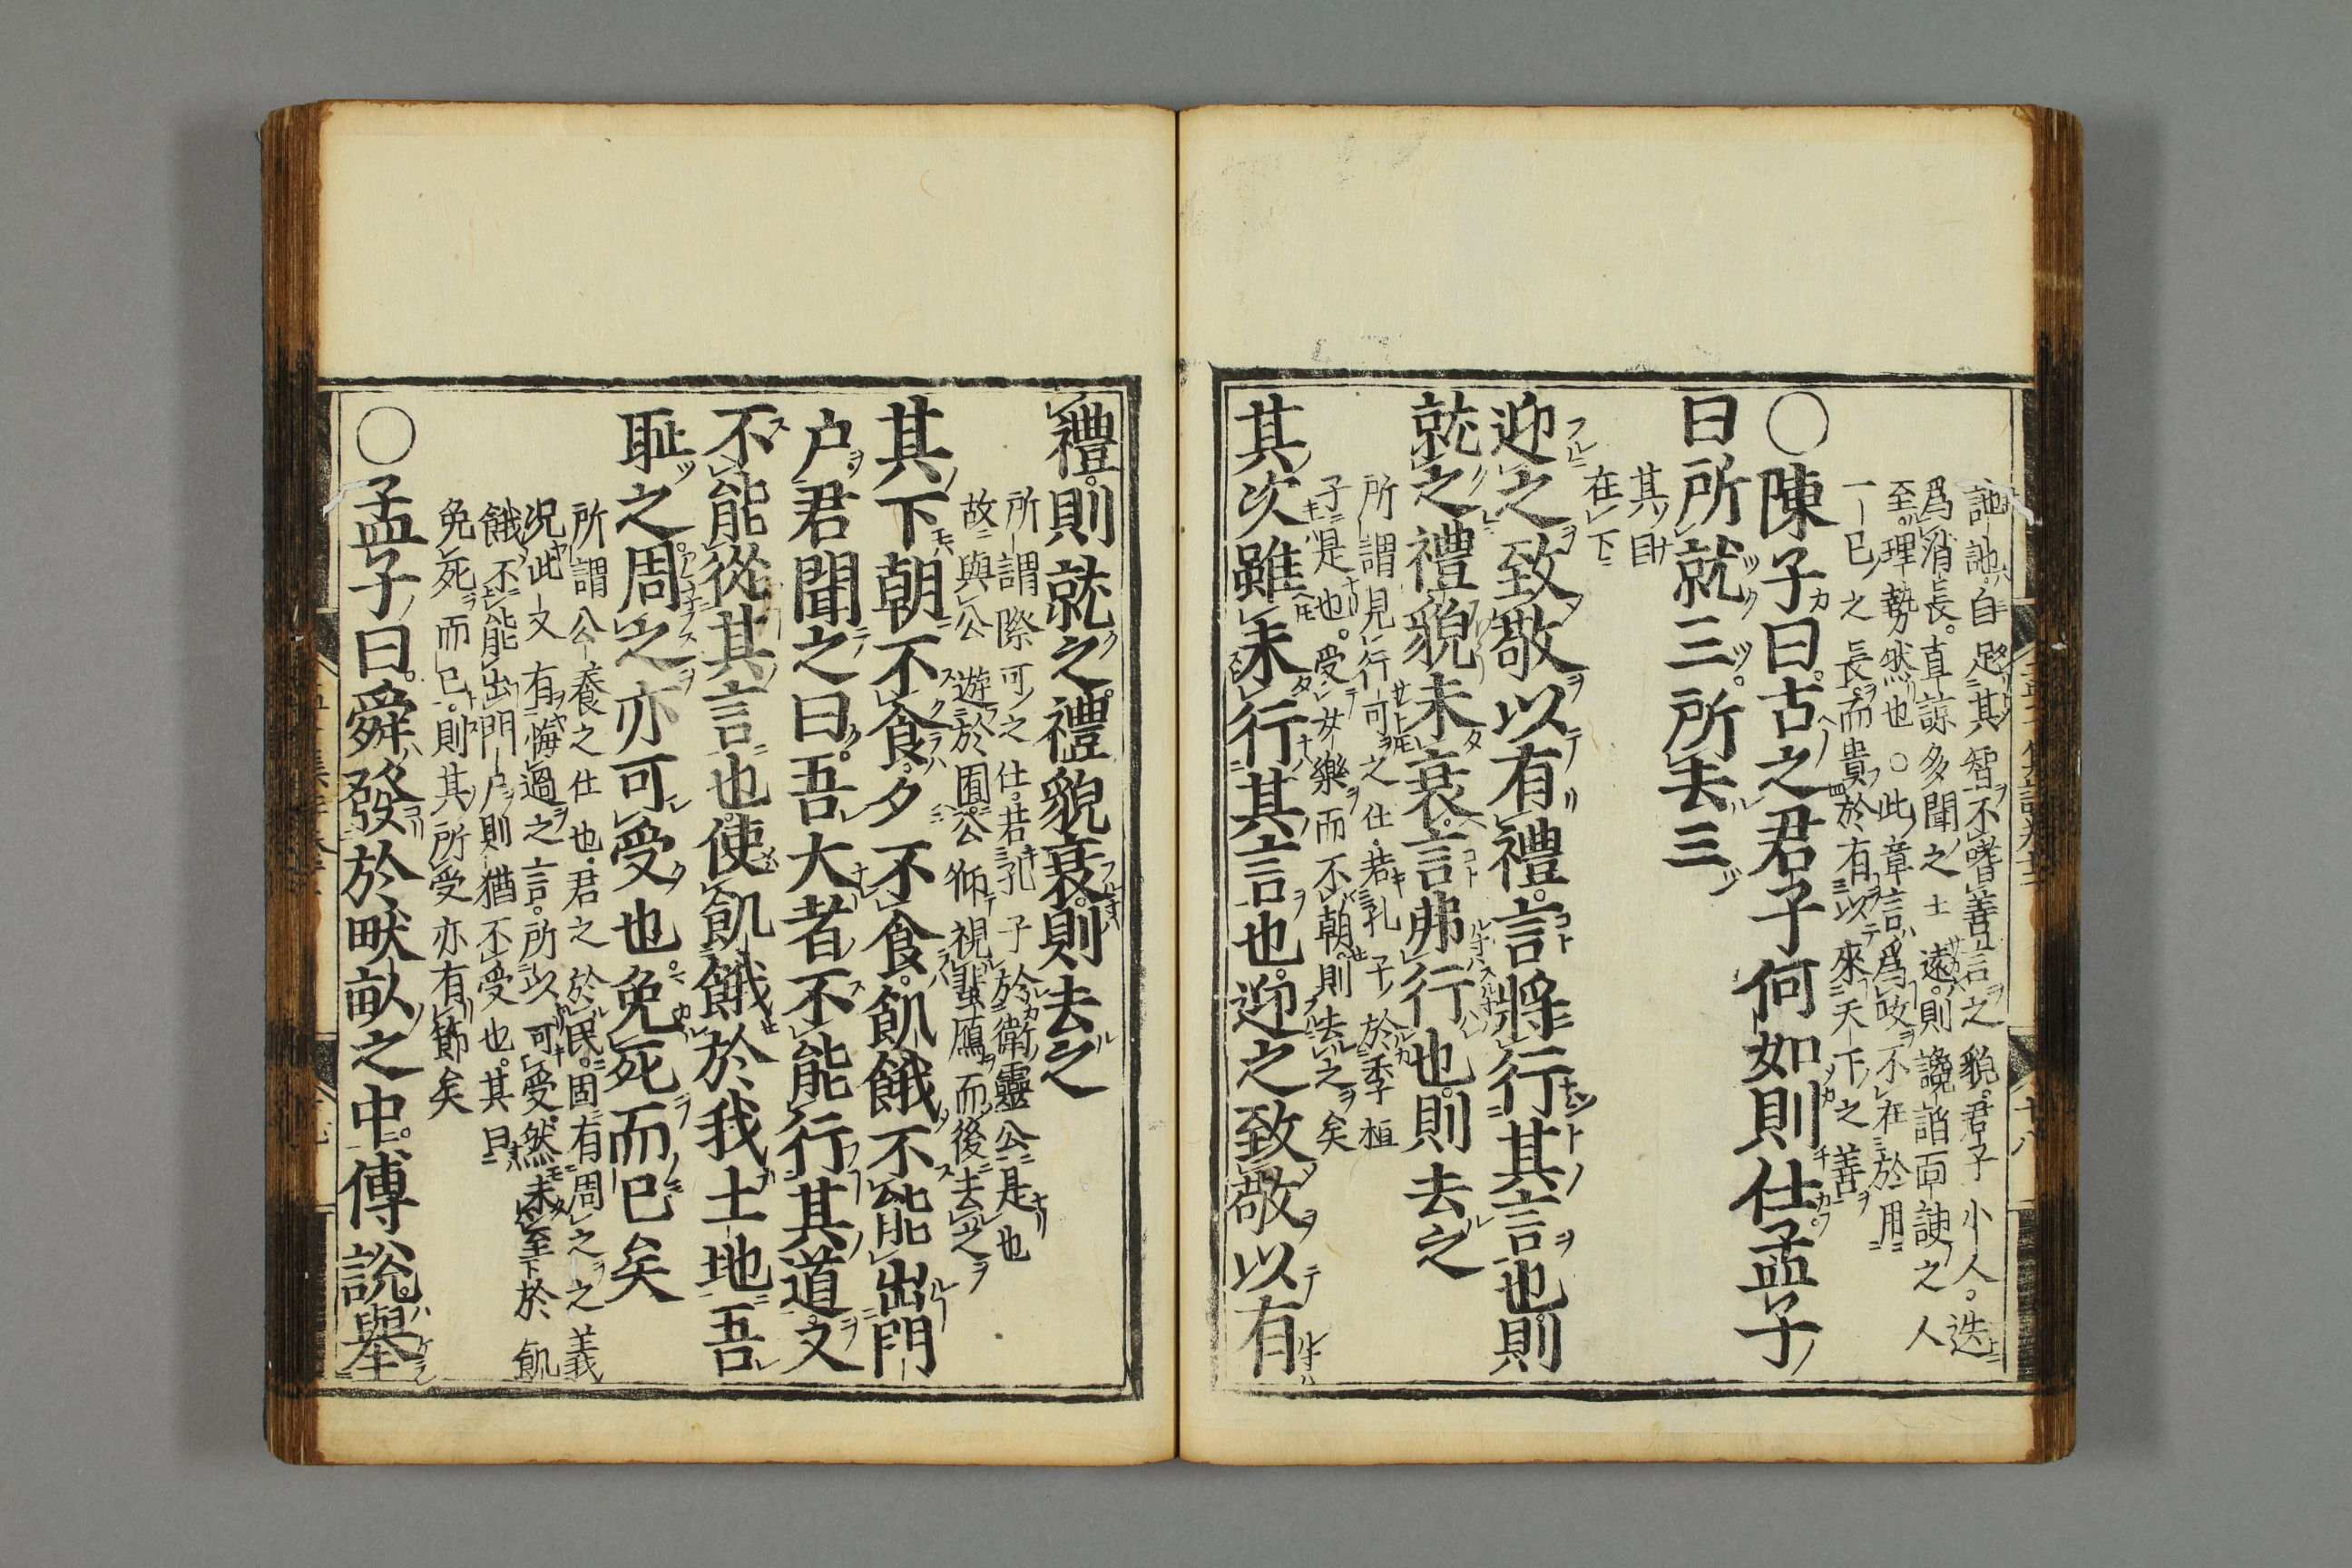 訑訑自足其智不嗜善言之貌君子小人迭
爲消長直諒多聞之士遠則讒諂面諛之人
至理勢然也○此章言爲政不在於用
一己之長而貴於有以來天下之善
○陳子曰古之君子何如則仕孟子
曰所就三所去三
其目
在下
迎之致敬以有禮言將行其言也則
就之禮貌未衰言弗行也則去之
所謂見行可之仕若孔子於季桓
子是也受女樂而不朝則去之矣
其次雖未行其言也迎之致敬以有
禮則就之禮貌衰則去之
所謂際可之仕若孔子於衛靈公是也
故與公遊於囿公仰視蜚鴈而後去之
其下朝不食夕不食飢餓不能出門
户君聞之曰吾大者不能行其道又
不能從其言也使飢餓於我土地吾
恥之周之亦可受也免死而已矣
所謂公養之仕也君之於民固有周之之義
况此又有悔過之言所以可受然未至於飢
餓不能出門户則猶不受也其曰
免死而已則其所受亦有節矣
○孟子曰舜發於畎畝之中傅說舉